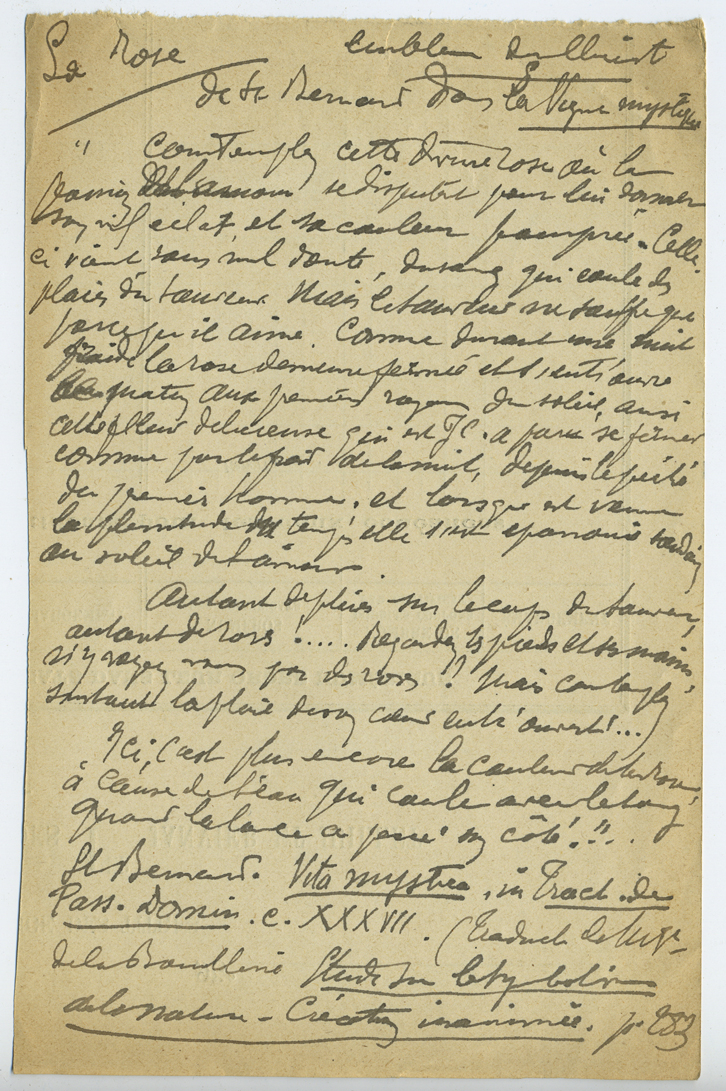 La Rose emblème du Christ
de St Bernard dans la Vigne mystique
" Contemplez cette divine rose où la
passion et l'amour se disputent pour lui donner
son vif éclat et sa couleur pourprée. Celle
ci vient sans nul doute, du sang qui coule des
plaies du Sauveur. Mais le Sauveur ne souffre que
parce qu'il aime. Comme durant une nuit
froide la rose demeure fermée et s'entr'ouvre
aux premiers rayons du soleil, ainsi
cette fleur délicieuse qui est J C. a paru se fermer
comme par le froid de la nuit, depuis le péché
du premier homme. et lorsque est venue
la plénitude des temps elle s'est épanouie soudain
au soleil de l'amour.
Autant de plaies sur le corps du Sauveur,
autant de roses !.... Regardez ses pieds et ses mains,
n'y voyez vous pas des roses ? Mais contemplez
surtout la plaie de son cœur entr'ouvert !...
Ici, c'est plus encore la couleur de la rose,
à cause de l'eau qui coule avec le sang
quand la lance a percé son côté. !!...
St Bernard. Vitis mystica, in Tract. de
Pass. Domin. c. XXXVII. (Traduct. de Mgr
de la Bouillerie Etude sur le symbolisme
de la nature - Création inanimée. p. 283